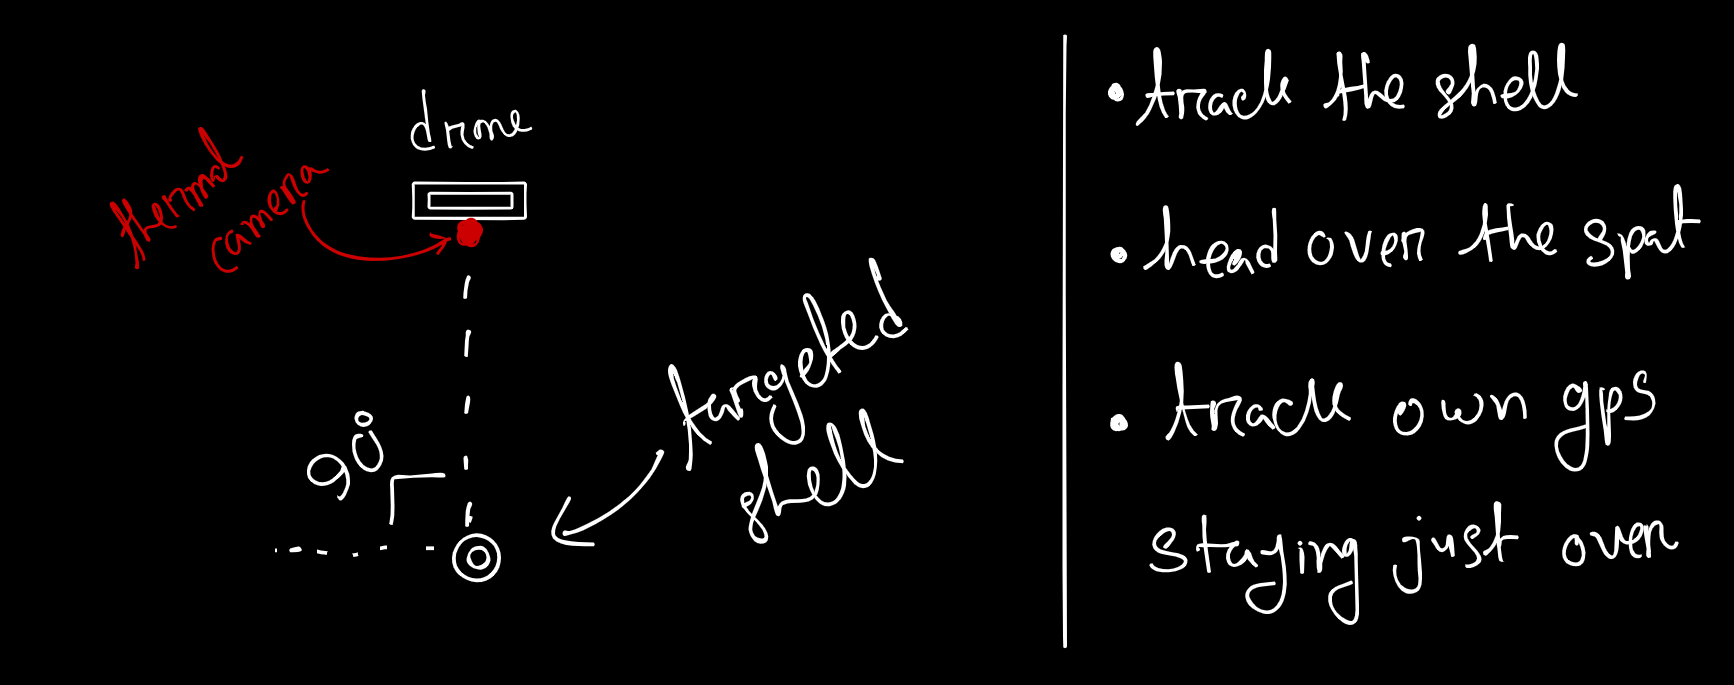 drone
thermal
camera
targeted
shell
90°
• track the shell
• head over the spot
• track own gps
staying just over